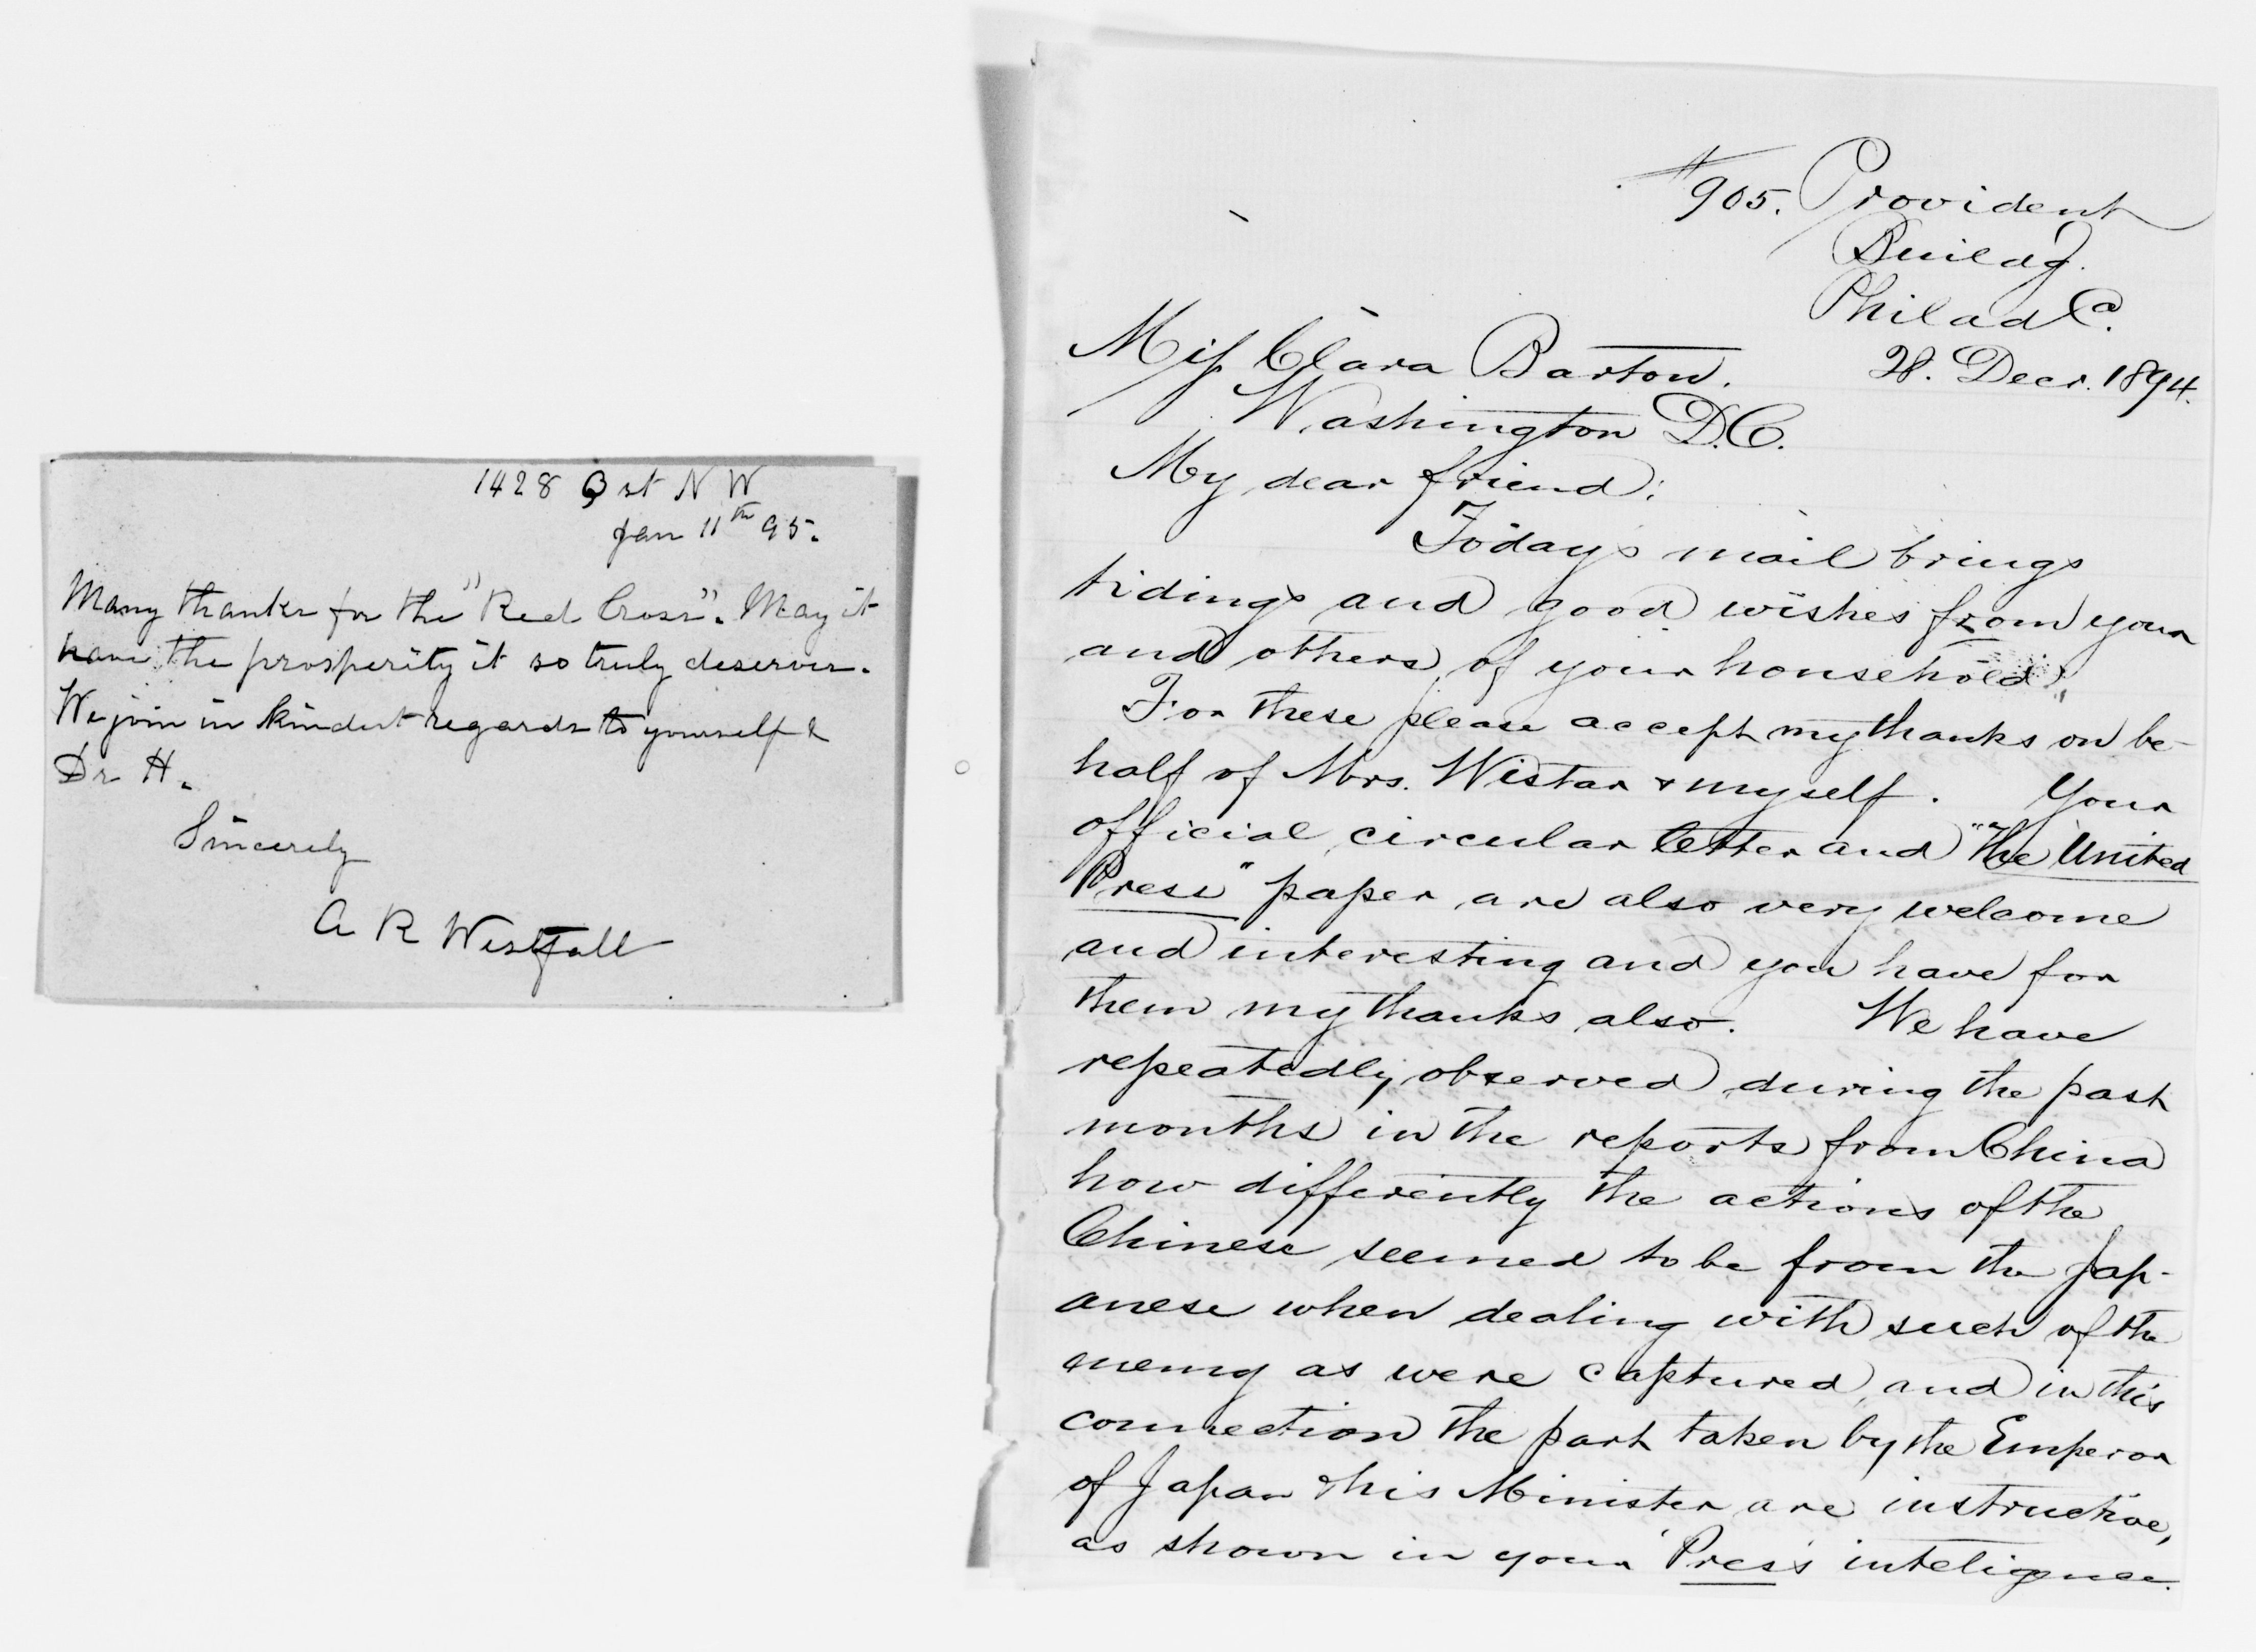 1428 Q st N W
Jan 11th 95.
Many thanks for the "Red Cross". May it
have the prosperity it so truly deserves.
We join in kindest regards to yourself &
Dr H.
Sincerely
A R Westfall
#905. Provident
Buildg.
Philada.
Miss Clara Barton. 28. Decr. 1894.
Washington D.C.
My dear friend:
Todays mail brings
tidings and good wishes from you
and others of your household.
For these please accept my thanks on be-
half of Mrs. Wistar & myself. Your
official circular letter and "the United
Press" paper are also very welcome
and interesting and you have for
them my thanks also. We have
repeatedly observed during the past
months in the reports from China
how differently the actions of the
Chinese seemed to be from the Jap-
anese when dealing with such of the
enemy as were captured, and in this
connection the part taken by the Emperor
of Japan & his Minister are instructive,
as shown in your Press inteligence.